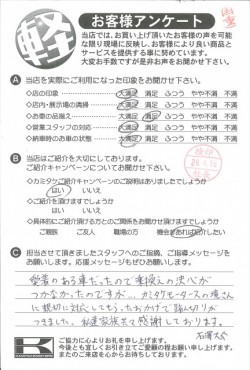 軽
お客様アンケート
当店では、お買い上げ頂いたお客様の声を可能
な限り現場に反映し、お客様により良い商品と
サービスを提供する事に努めています。
大変お手数ですが是非お声をお聞かせ下さい。
A 当店を実際にご利用になった印象をお聞かせ下さい。
◇店の印象 大満足 満足 ふつう やや不満 不満
◇店内・展示場の清掃 大満足 満足 ふつう やや不満 不満
◇お車の品揃え 大満足 満足 ふつう やや不満 不満
◇営業スタッフの対応 大満足 満足 ふつう やや不満 不満
◇納車時のお車の状態 大満足 満足 ふつう やや不満 不満
B 当店はご紹介を大切にしております。
ご紹介キャンペーンについてお聞かせ下さい。
◇カミタケご紹介キャンペーンのご説明はありましたでしょうか
はい いいえ
はい いいえ
◇具体的にご紹介頂ける方とのご関係をお聞かせ頂けますでしょうか
ご親族 ご友人 職場の方 機会があれば紹介したい
C 担当させて頂きましたスタッフへのご指摘、ご指導メッセージを
お願いします。応援メッセージもぜひお願いします。
愛着のある車だったので乗換えの決心が
つかなかったのですが…カミタケモータースの皆さん
に親切に対応してもらったおかげで踏ん切りが
つきました。私達家族共々感謝しております。
ご協力に心よりお礼を申し上げます。
今後とも宜しくお引き立てご愛顧の程お願い申し上げます。
またのご来店を心からお待ちしております。